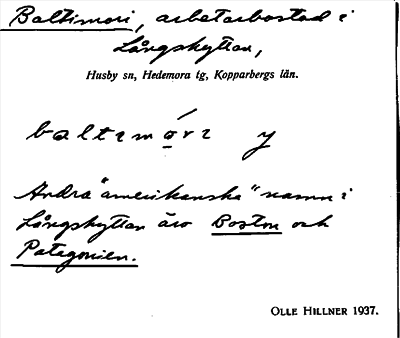 Baltimori, arbetarbostad i
Långshyttan,
Husby sn, Hedemora tg, Kopparbergs län.
baltimori y
Andra "amerikanska" namn i
Långshyttan äro Boston och
Patagonien.
OLLE HILLNER 1937.